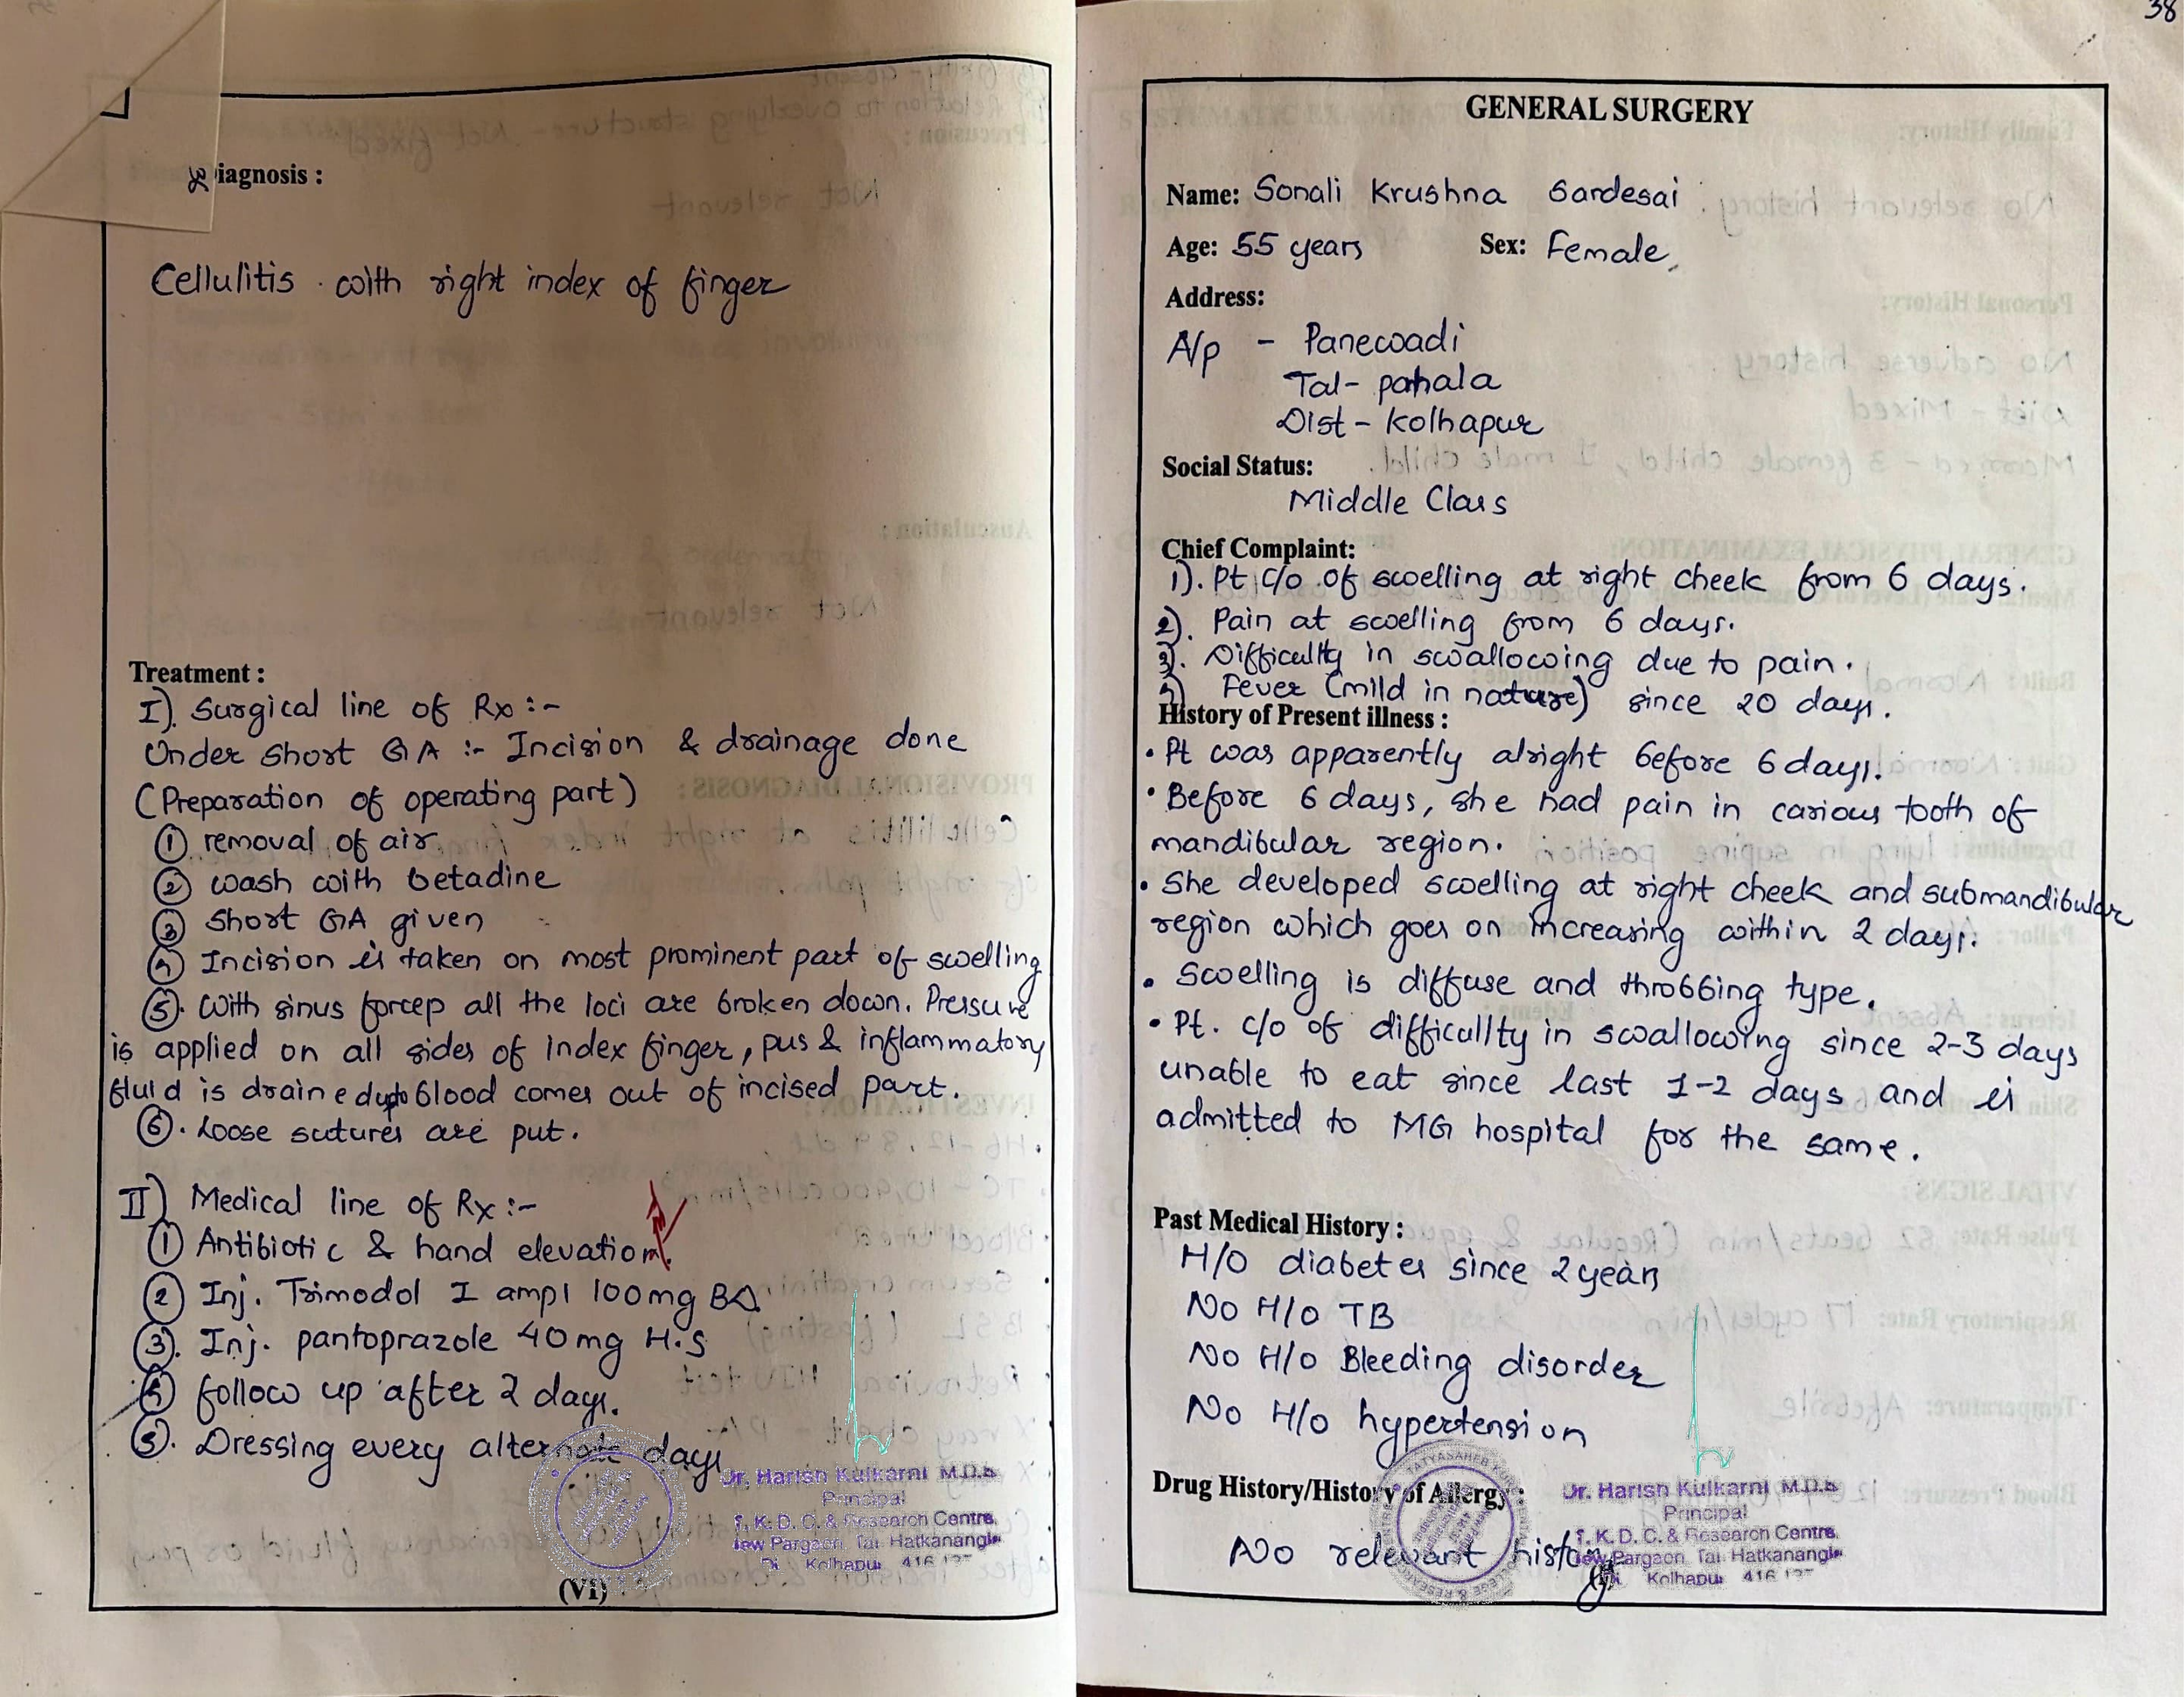 Diagnosis :
Cellulitis with right index of finger
Treatment :
I). Surgical line of Rx :-
Under short GA :- Incision & drainage done
(Preparation of operating part)
① removal of air
② wash with betadine
③ short GA given
④ Incision is taken on most prominent part of swelling
⑤. With sinus forcep all the loci are broken down. Pressure
is applied on all sides of index finger, pus & inflammatory
fluid is drained upto blood comes out of incised part.
⑥. Loose sutures are put.
II) Medical line of Rx :-
① Antibiotic & hand elevation.
② Inj. Trimodol I ampl 100mg BD
③. Inj. pantoprazole 40mg H.S
④ follow up after 2 days.
⑤. Dressing every alternate days
Dr. Harish Kulkarni M.D.S
Principal
T. K. D. C. & Research Centre,
New Pargaon, Tal. Hatkanangle
Di. Kolhapur 416 137
(VI)
38
GENERAL SURGERY
Name: Sonali Krushna Sardesai
Age: 55 years Sex: Female
Address:
A/p - Panewadi
Tal- pahala
Dist- Kolhapur
Social Status:
Middle Class
Chief Complaint:
1). Pt c/o of swelling at right cheek from 6 days.
2). Pain at swelling from 6 days.
3). Difficullty in swallowing due to pain.
4) Fever (mild in nature) since 20 days.
History of Present illness :
• Pt was apparently alright before 6 days.
• Before 6 days, she had pain in carious tooth of
mandibular region.
• She developed swelling at right cheek and submandibular
region which goes on increasing within 2 days.
• Swelling is diffuse and throbbing type.
• Pt. c/o of difficullty in swallowing since 2-3 days
unable to eat since last 1-2 days and is
admitted to MG hospital for the same.
Past Medical History :
H/O diabetes since 2 years
No H/o TB
No H/o Bleeding disorder
No H/o hypertension
Drug History/History of Allergy :
No relevant history
Dr. Harish Kulkarni M.D.S
Principal
T. K. D. C. & Research Centre,
New Pargaon, Tal. Hatkanangle
Kolhapur 416 137